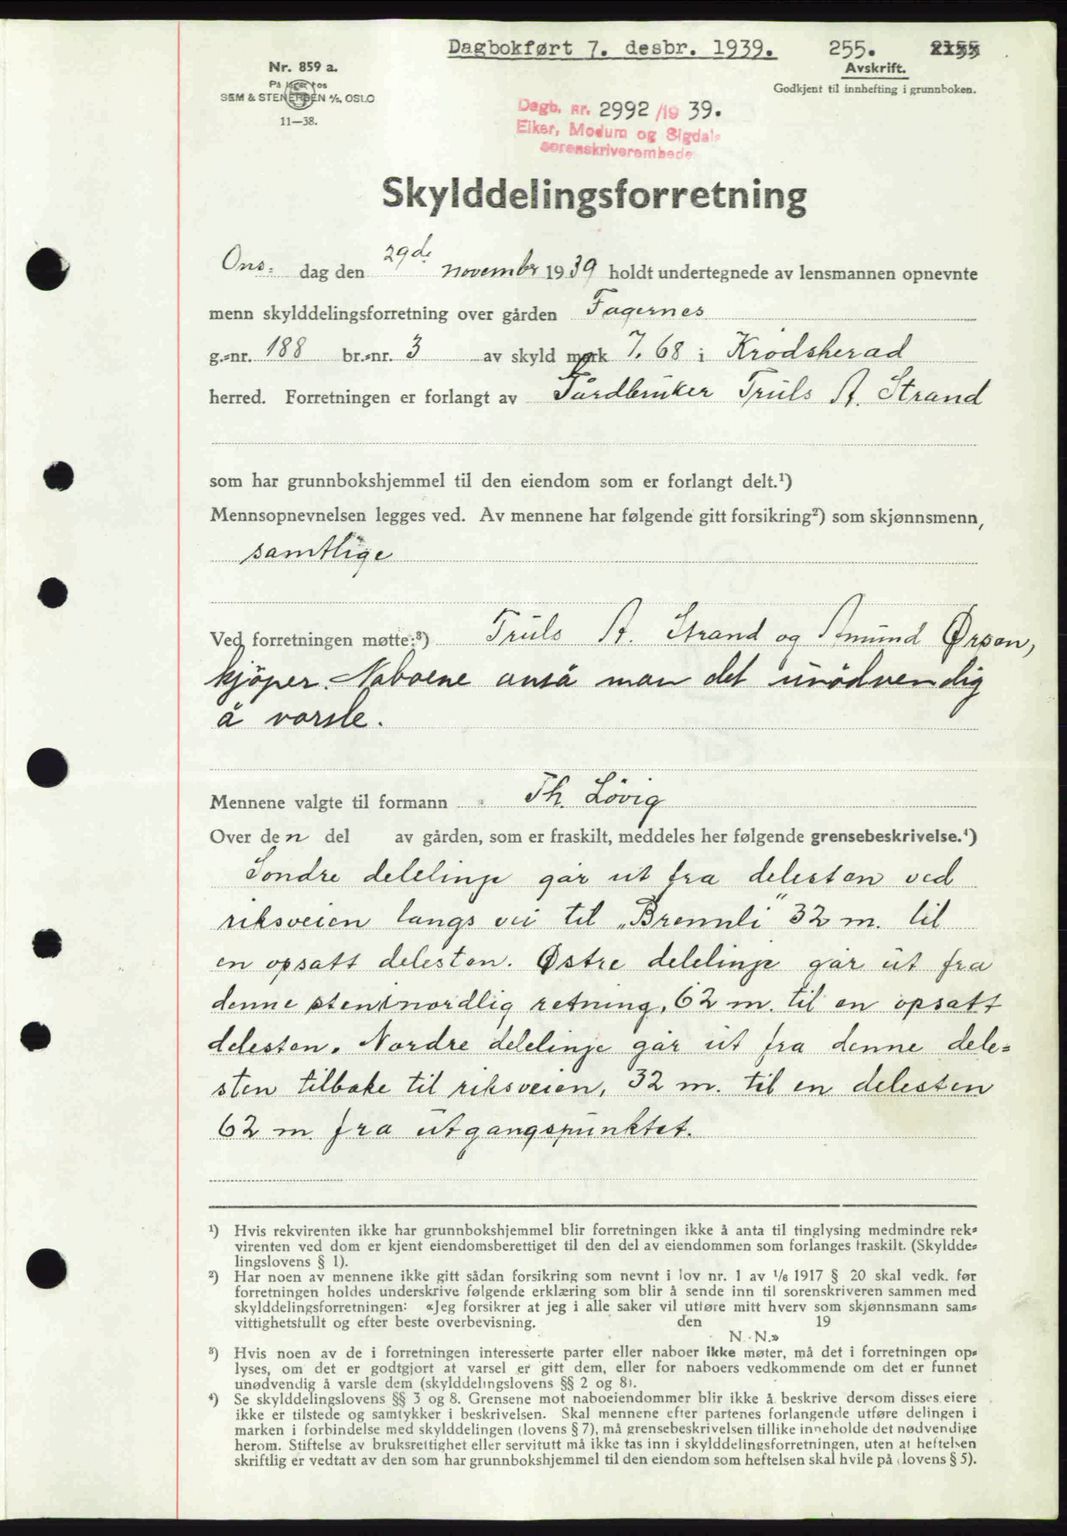 Dagbokført 7. desbr. 1939. 255. 2155
Avskrift.
Godkjent til innhefting i grunnboken.
Nr. 859 a.
På lager hos
SEM & STENERSEN A/S, OSLO
11—38.
Dagb. nr. 2992/19 39.
Eiker, Modum og Sigdal
sorenskriverembede
Skylddelingsforretning
Ons- dag den 29de november 1939 holdt undertegnede av lensmannen opnevnte
menn skylddelingsforretning over gården Fagernes
g.-nr. 188 br.-nr. 3 av skyld mark 7.68 i Krødsherad
herred. Forretningen er forlangt av Gårdbruker Truls A. Strand
som har grunnbokshjemmel til den eiendom som er forlangt delt.¹)
Mennsopnevnelsen legges ved. Av mennene har følgende gitt forsikring²) som skjønnsmenn,
samtlige
Ved forretningen møtte:³) Truls A. Strand og Amund Ørpen,
kjöper. Naboene anså man det unödvendig
å varsle.
Mennene valgte til formann Th. Lövig
Over den del av gården, som er fraskilt, meddeles her følgende grensebeskrivelse.⁴)
Söndre delelinje går ut fra delesten ved
riksveien langs vei til „Brennli" 32 m. til
en opsatt delesten. Østre delelinje går ut fra
denne sten i nordlig retning, 62 m. til en opsatt
delesten. Nordre delelinje går ut fra denne dele-
sten tilbake til riksveien, 32 m. til en delesten
62 m. fra utgangspunktet.
¹) Hvis rekvirenten ikke har grunnbokshjemmel blir forretningen ikke å anta til tinglysing medmindre rek-
virenten ved dom er kjent eiendomsberettiget til den del av eiendommen som forlanges fraskilt. (Skyldde-
lingslovens § 1).
²) Har noen av mennene ikke gitt sådan forsikring som nevnt i lov nr. 1 av 1/6 1917 § 20 skal vedk. før
forretningen holdes underskrive følgende erklæring som blir å sende inn til sorenskriveren sammen med
skylddelingsforretningen: «Jeg forsikrer at jeg i alle saker vil utføre mitt hverv som skjønnsmann sam-
vittighetsfullt og efter beste overbevisning. den 19
N. N.»
³) Hvis noen av de i forretningen interesserte parter eller naboer ikke møter, må det i forretningen op-
lyses, om det er godtgjort at varsel er gitt dem, eller for naboers vedkommende om det er funnet
unødvendig å varsle dem (skylddelingslovens §§ 2 og 8).
⁴) Se skylddelingslovens §§ 3 og 8. Grensene mot naboeiendommer blir ikke å beskrive dersom disses eiere
ikke er tilstede og samtykker i beskrivelsen. Skal mennene efter partenes forlangende utføre delingen i
marken i forbindelse med skylddelingen (lovens § 7), må grensebeskrivelsen tillike inneholde det nødvendige
herom. Stiftelse av bruksrettighet eller servitutt må ikke tas inn i skylddelingsforretningen, uten at heftelsen
skriftlig er vedtatt av den som har grunnbokshjemmel til den eiendom som heftelsen skal hvile på (lovens § 5).